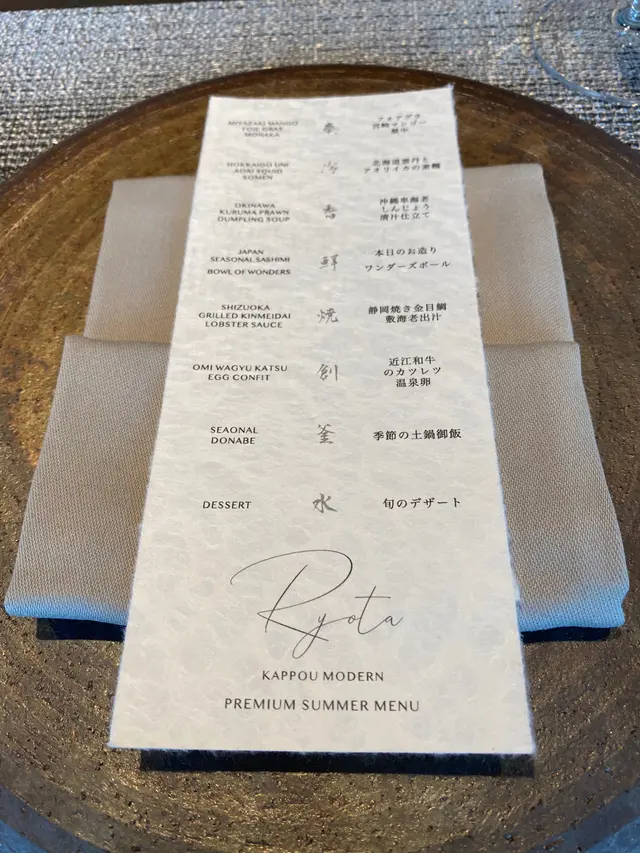 MIYAZAKI MANGO
FOIE GRAS
MONAKA
奏
フォアグラ
宮崎マンゴー
最中
HOKKAIDO UNI
AORI SQUID
SOMEN
北海道雲丹と
アオリイカの素麺
OKINAWA
KURUMA PRAWN
DUMPLING SOUP
沖縄車海老
しんじょう
清汁仕立て
JAPAN
SEASONAL SASHIMI
BOWL OF WONDERS
鮮
本日のお造り
ワンダーズボール
SHIZUOKA
GRILLED KINMEIDAI
LOBSTER SAUCE
焼
静岡焼き金目鯛
敷海老出汁
OMI WAGYU KATSU
EGG CONFIT
創
近江和牛
のカツレツ
温泉卵
SEAONAL
DONABE
釜
季節の土鍋御飯
DESSERT
水
旬のデザート
Ryota
KAPPOU MODERN
PREMIUM SUMMER MENU